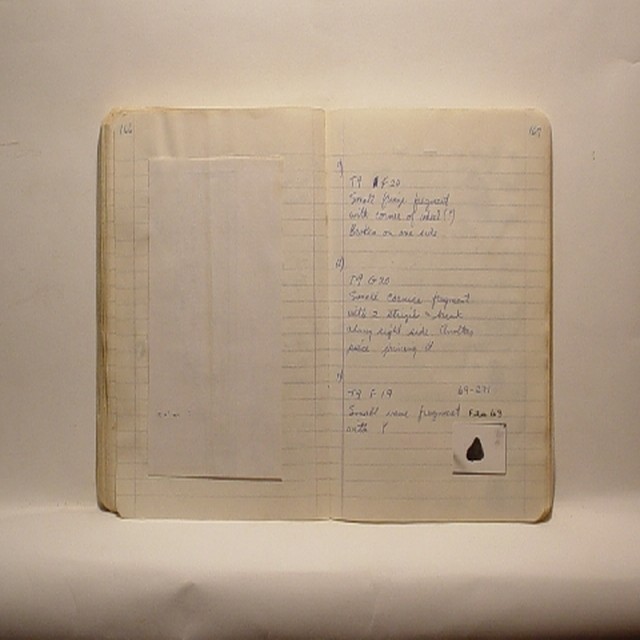 166
167
T9 F-20
Small frieze fragment
with corner of
Broken on one side
T9 G20
Small cornice fragment
with 2
along right side. Another
piece joining it
T9 F-19 69-271
Small vase fragment Film 69
with ?